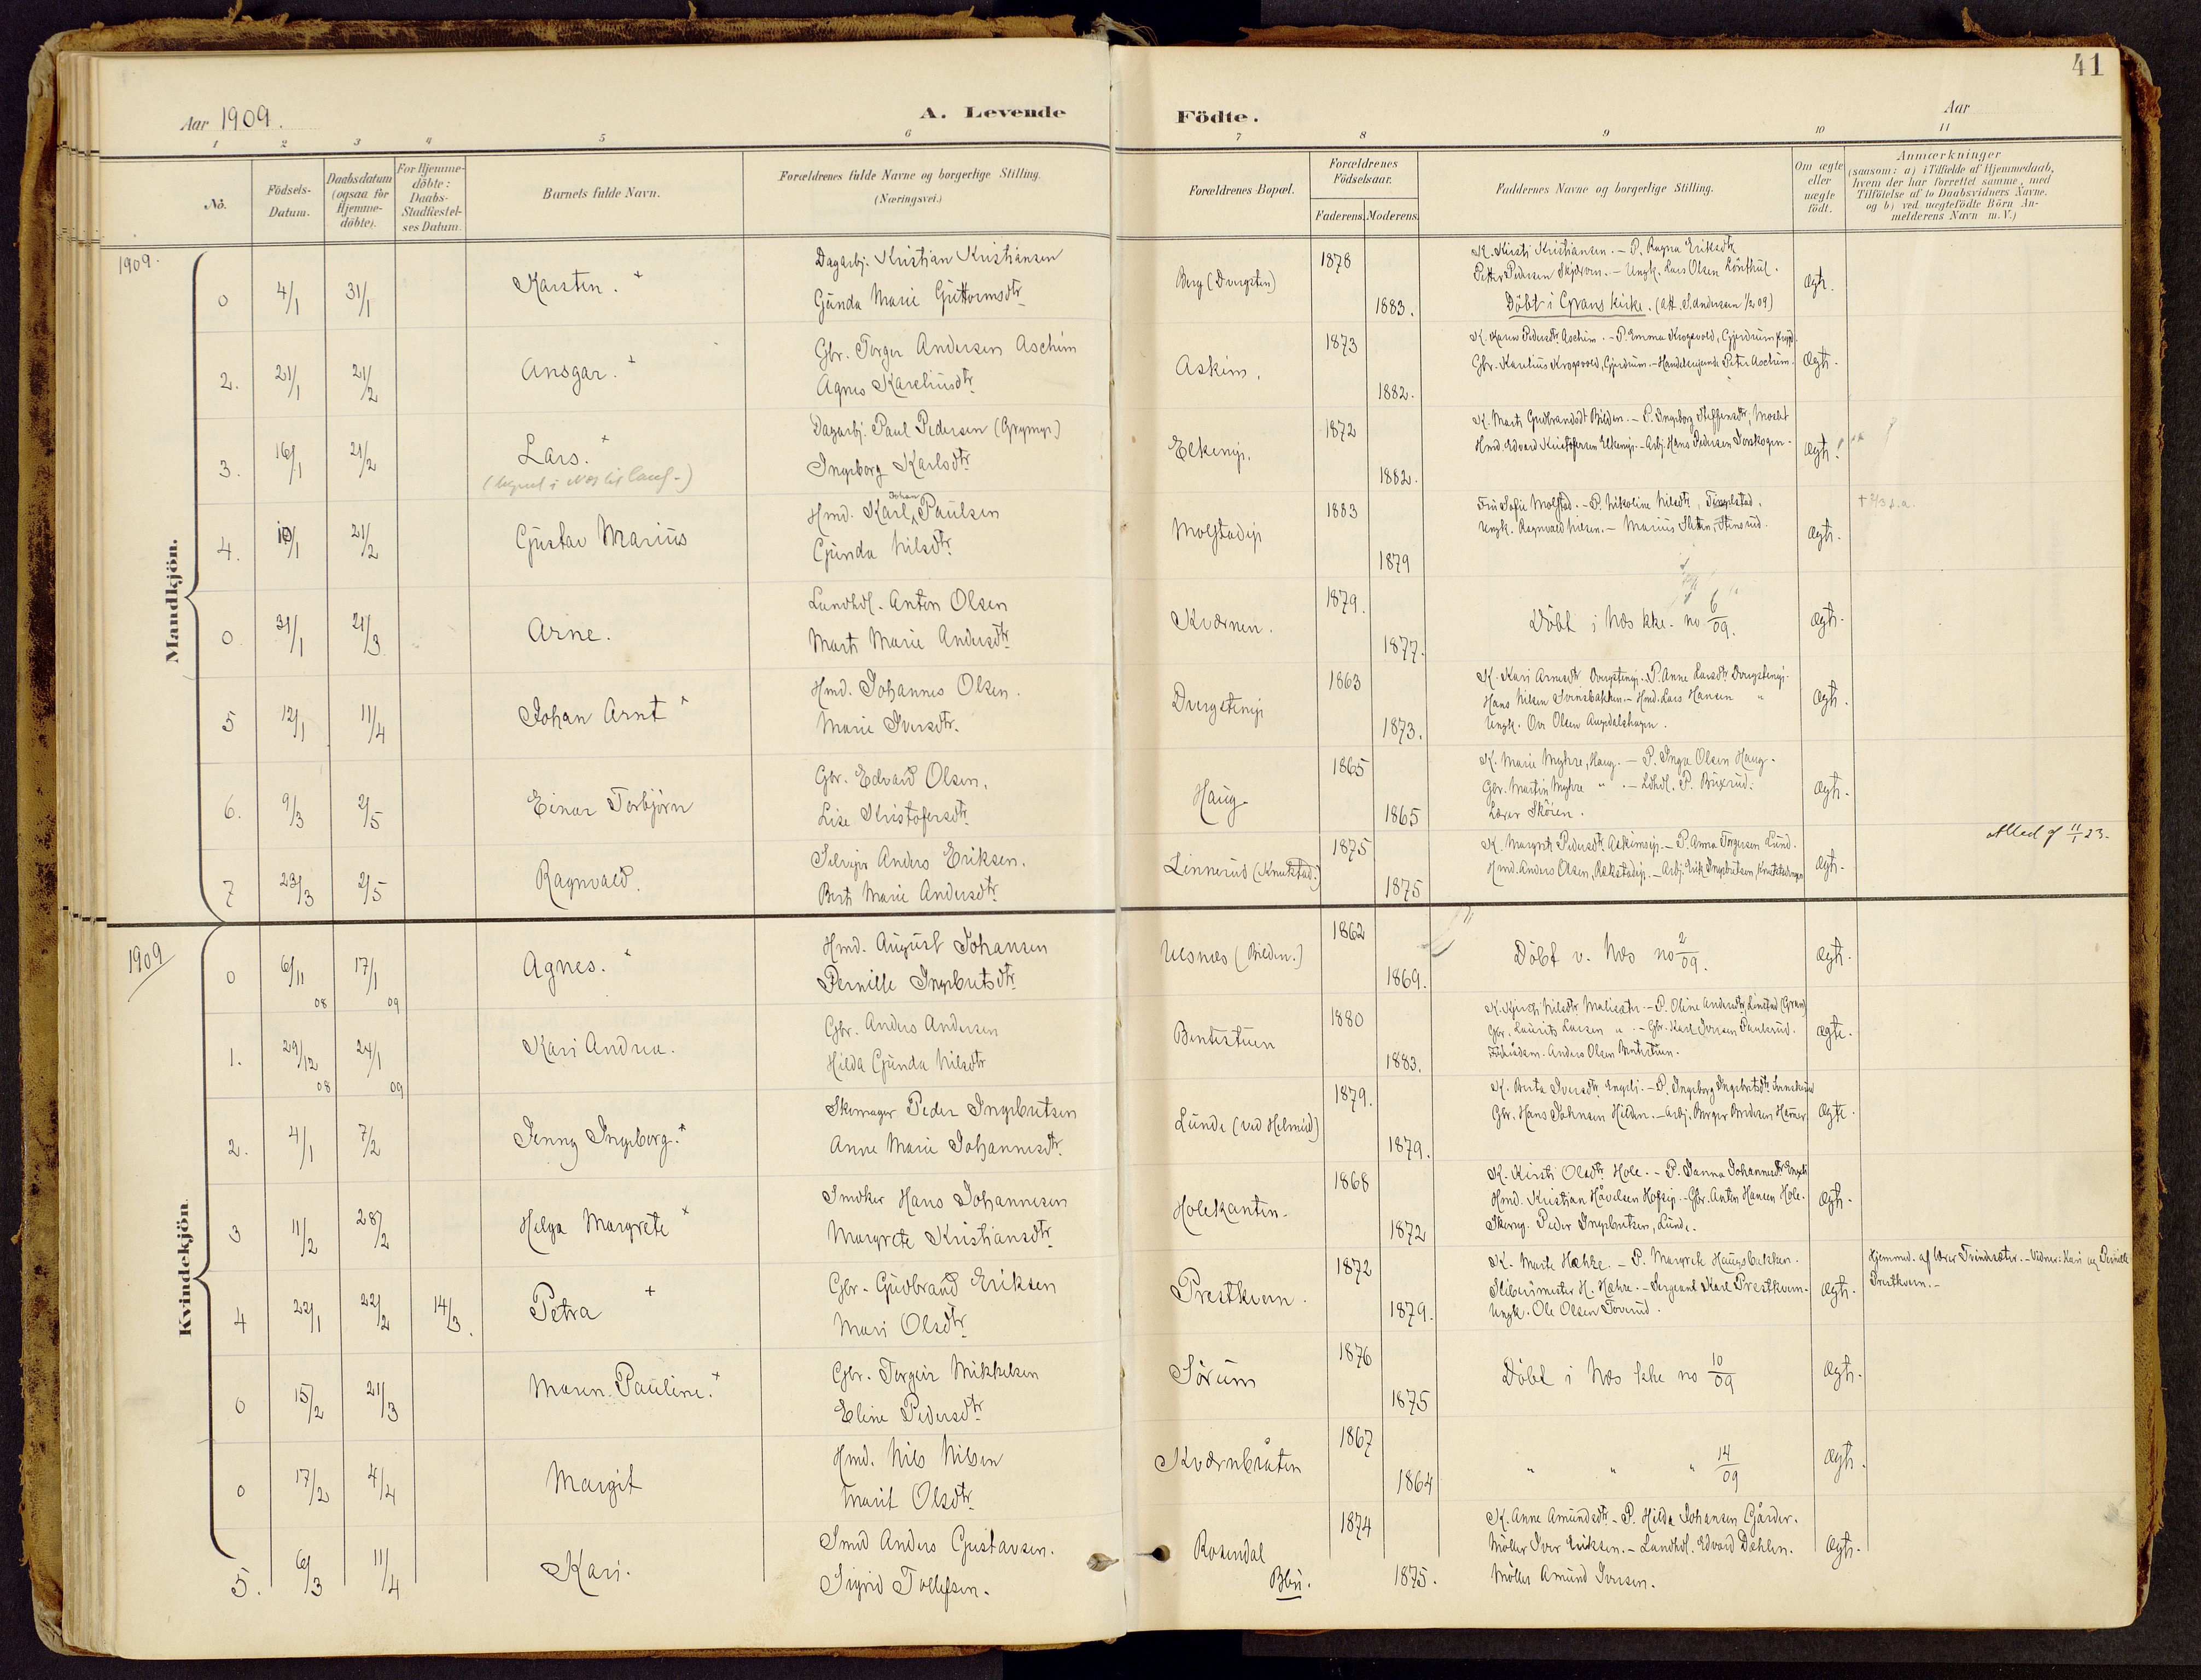 41
Aar 1909.
A. Levende
Födte.
Aar
1 2 3 4 5 6 7 8 9 10 11
No.
Födsels-Datum.
Daabsdatum (ogsaa for Hjemme-döbte).
For Hjemme-döbte: Daabs-Stadfæstel-ses Datum.
Barnets fulde Navn.
Forældrenes fulde Navne og borgerlige Stilling.
(Næringsvei.)
Forældrenes Bopæl.
Forældrenes Födselsaar.
Faderens. Moderens.
Faddernes Navne og borgerlige Stilling.
Om ægte eller uægte födt.
Anmærkninger
(saasom: a) i Tilfælde af Hjemmedaab,
hvem der har forrettet samme, med
Tilföielse af to Daabsvidners Navne.
og b) ved uægtefödte Börn An-
melderens Navn m. V.)
Mandkjön.
1909.
0 4/1 31/1 Karsten. +
Dagarbj. Kristian Kristiansen
Gunda Marie Guttormsdtr.
Berg (Dvergsten) 1878 1883.
K. Kirsti Kristiansen. - P. Ragna Eriksdtr.
Petter Pedersen Skjærvsn. - Ungk. Lars Olsen
Döbt i Grans Kirke.
ægt.
2. 21/1 21/2 Ansgar. +
Gbr. Torger Andersen Aschim
Agnes Kareliusdtr.
Askim. 1873 1882.
K. Karen Pedersdtr. Aschim. - P. Emma Krogsvold, Gjerdrum
Gbr. Karelius Krogsvold, Gjerdrum. - Handelsbetjent Peter Aschim.
ægt.
3. 16/1 21/2 Lars. +
Dagarbj. Paul Pedersen (Grymyr.)
Ingeborg Karlsdtr.
Elkenip. 1872 1882.
K. Marti Gudbrandsdt Bilden. - P. Ingeborg Steffensdtr, Moslet
Hmd. Edvard Kristofersen Elkenip. - Arbj. Hans Pedersen
ægt.
4. 10/1 21/2 Gustav Marius
Hmd. Karl Johan Paulsen
Gunda Nilsdtr.
Molstadip 1883 1879
Fru Sofie Molstad. - P. Nikoline Nilsdtr, Tingelstad.
Ungk. Ragnvald Nilsen. - Marius Sletten, Stensrud.
ægt.
0. 31/1 21/3 Arne.
Landhdl. Anton Olsen
Marti Marie Andersdtr.
Kværnen. 1879. 1877.
Döbt i Næs kke. no 6/09.
ægt.
5 12/1 11/4 Johan Arnt +
Hmd. Johannes Olsen.
Marie Iversdtr.
Dvergstenip 1863 1873.
K. Kari Arnesdtr. Dvergstenip. - P. Anne Larsdtr. Dvergstenip.
Hans Nilsen Svinsbakken. - Hmd. Lars Hansen "
Ungk. Ove Olsen Augedalshagen.
ægt.
6. 9/3 2/5 Einar Torbjörn
Gbr. Edvard Olsen.
Lise Kristofersdtr.
Haug. 1865 1865
K. Marie Myhre, Haug. - P. Inga Olsen Haug.
Gbr. Martin Myhre " . - Ldhdl. P. Buxrud.
Lærer Skören.
ægt.
7 23/3 2/5 Ragnvald.
Selveier Anders Eriksen.
Berti Marie Andersdtr.
Linnerud (Knutstad.) 1875 1875
K. Margrit Pedersdtr. Askimsip. - P. Anna Torgersen Lund.
Hmd. Anders Olsen, - Arbj. Erik Ingebretsen
ægt.
11/1 23.
Kvindekjön
1909
0 6/11 08 17/1 09 Agnes. +
Hmd. August Johansen
Pernille Ingebretsdtr.
Ulsnæs (Bilden.) 1862 1869.
Döbt v. Næs no 2/09.
ægt.
1. 29/12 08 24/1 09 Kari Andrea.
Gbr. Anders Andersen
Hilda Gunda Nilsdtr
Bentestuen 1880 1883.
K. Kjersti Nilsdtr. - P. Oline Andersdtr, Linstad (Gran)
Gbr. Laurits Larsen " . - Gbr. Karl Iversen Paulsrud.
Föderådsm. Anders Olsen Bentestuen.
ægte.
2. 4/1 7/2 Jenny Ingeborg. +
Skomager Peder Ingebretsen
Anne Marie Johannesdtr.
Lunde (ved Helmeid) 1879. 1879.
K. Berta Iversdtr. Engeli. - P. Ingeborg Ingebretsdtr.
Gbr. Hans Johnsen Hilden. - Arbj.
ægte.
3 11/2 28/2 Helga Margrete +
Snedker Hans Johannesen
Margrete Kristiansdtr.
Holekanten. 1868 1872
K. Kirsti Olsdtr. Hole. - P. Janna Johannesdtr. Engeli
Hmd. Kristian Håvelsen Hofsip. - Gbr. Anton Hansen Hole.
Skomg. Peder Ingebretsen, Lunde.
ægt.
4 22/1 22/2 14/3. Petra +
Gbr. Gudbrand Eriksen
Mari Olsdtr.
Prestkvern. 1872 1879.
K. Marte Hæhre. - P. Margrete Haugsbakken.
Sliberimester H. Hæhre. - Sergeant Karl Prestkvern.
Ungk. Ole Olsen Toverud.
ægt.
Hjemmed. af lærer - Vidner: Kari og Pernille
Prestkvern. -
0 15/2 21/3 Maren Pauline. +
Gbr. Torgeir Mikkelsen
Eline Pedersdtr.
Sörum 1876 1875
Döbt i Næs kke no 10/09
ægt.
0 17/2 4/4 Margit
Hmd. Nils Nilsen
Marit Olsdtr.
Kværnbråten 1867 1864
" " " 14/09
ægt.
5. 6/3 11/4 Kari.
Smed Anders Gustavsen.
Sigrid Tollefsen.
Rosendal 1874 1875.
K. Anne Amundsdtr. - P. Hilda Johansen Gårder.
Möller Iver Eriksen. - Landhdl. Edvard Dæhlen.
Möller Amund Iversen.
ægt.